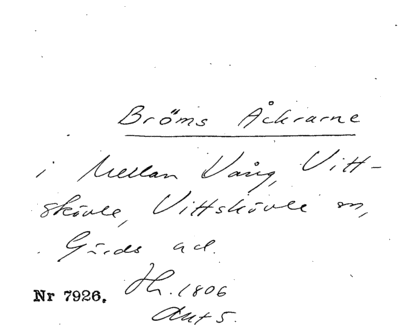 Bröms Åkrarne
i Mellan Vång, Vitt-
skövle, Vittskövle sn,
Gärds hd.
Nr 7926. Jh. 1806
Akt 5.